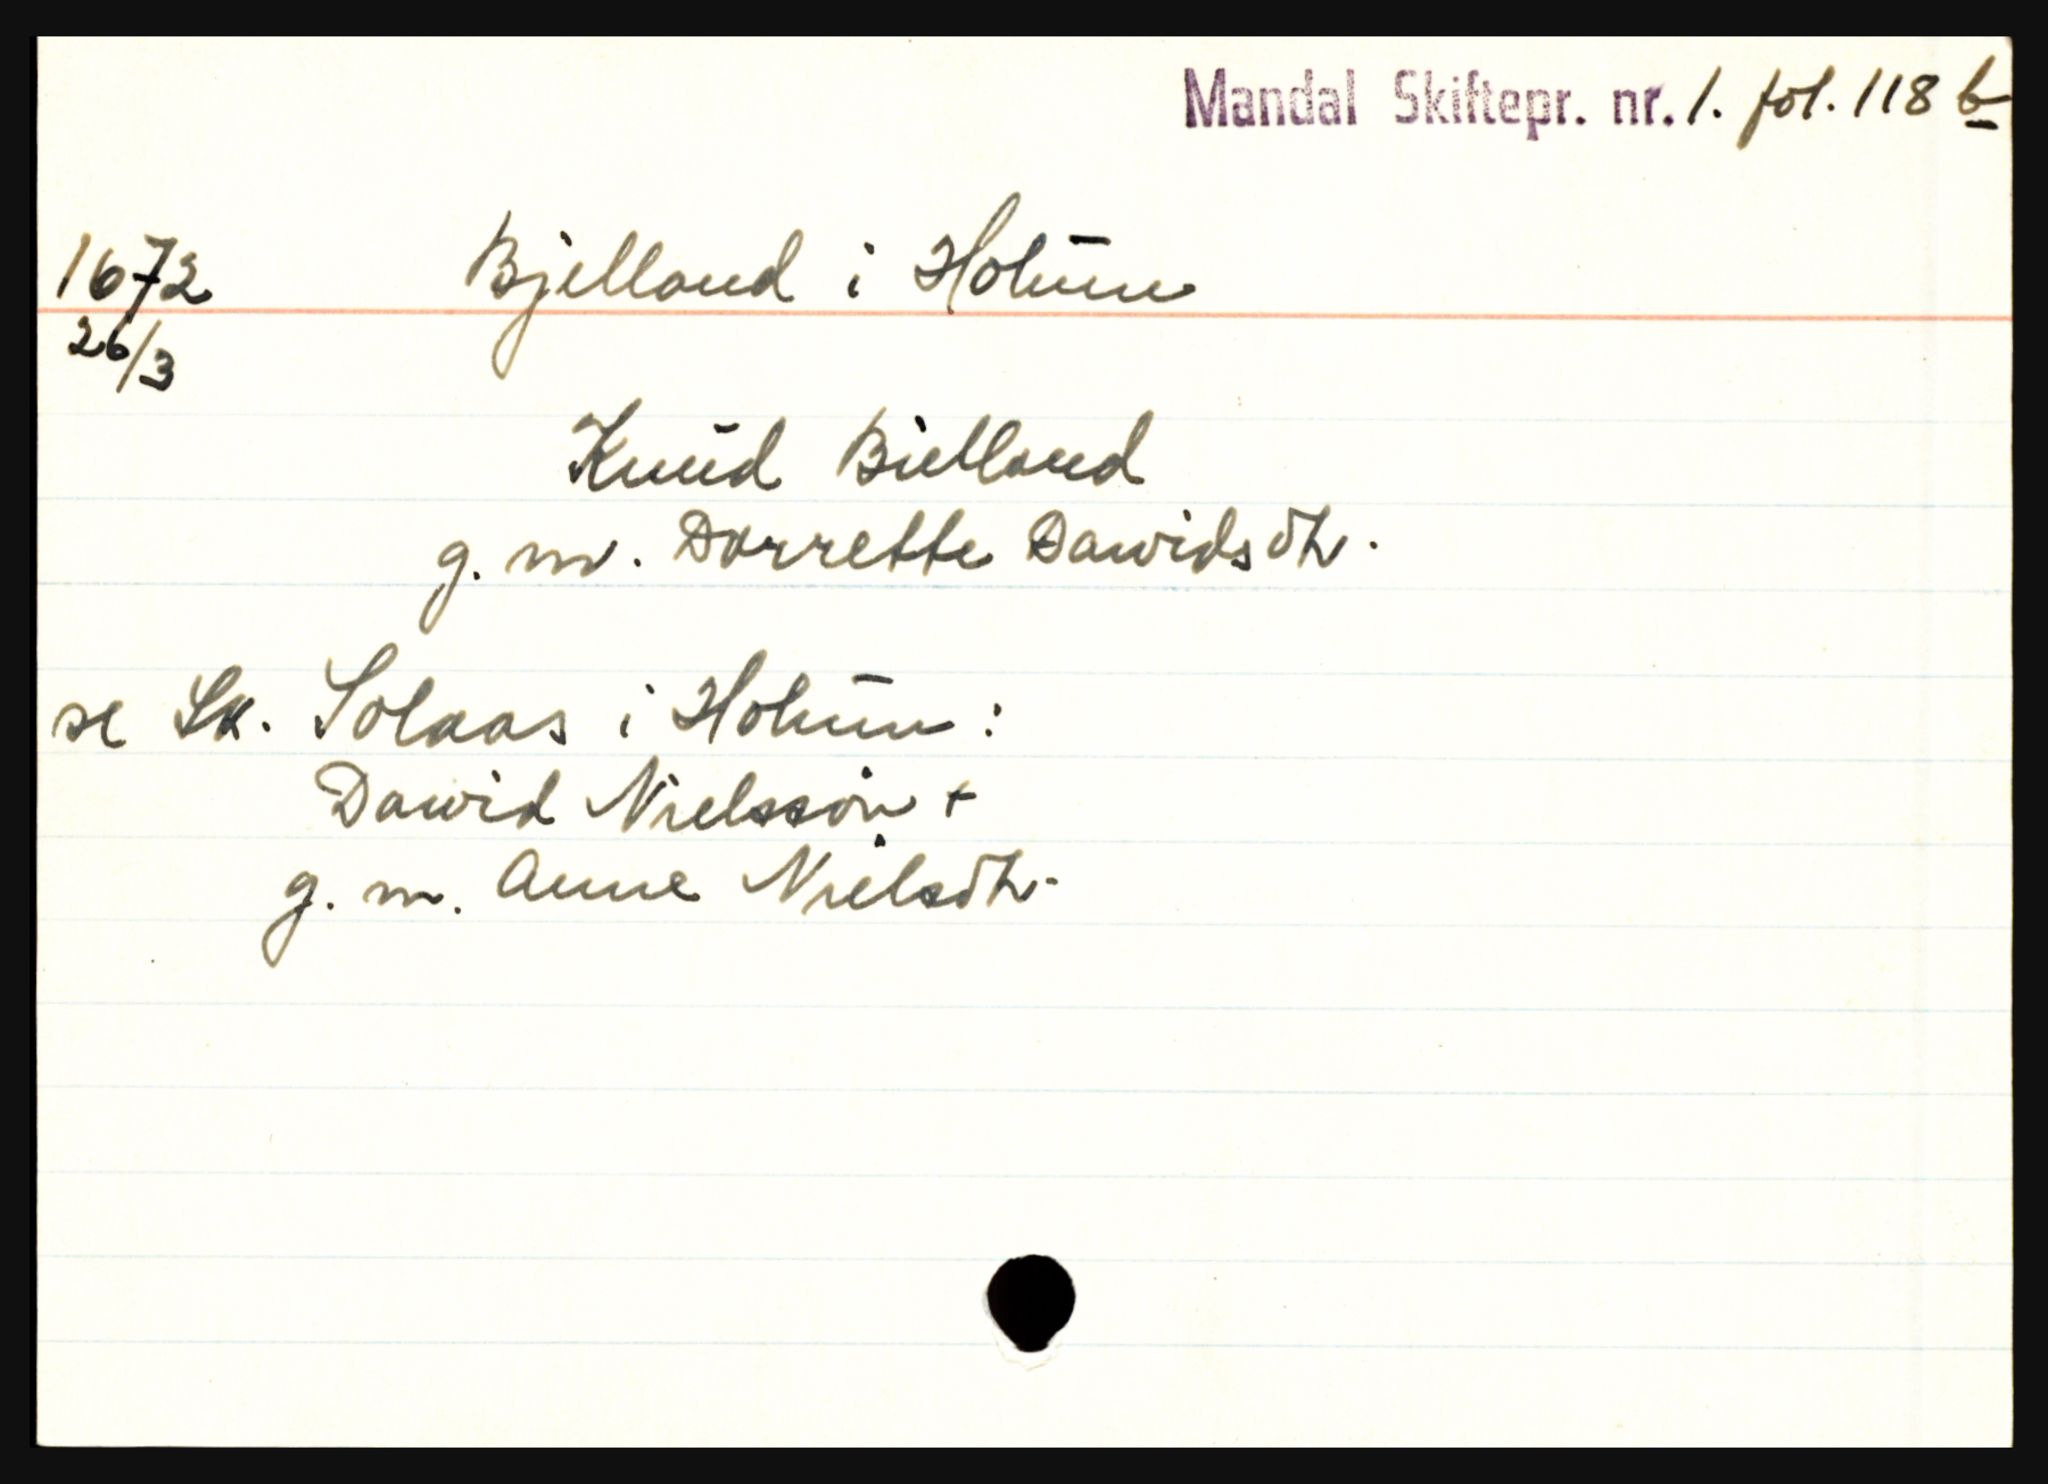 Mandal Skiftepr. nr. 1. fol. 118 b
1672 Bjelland i Holum
26/3
Knud Bielland
g. m. Dorrette Dawidsdtr.
se Sk. Solaas i Holum:
Dawid Nielssøn +
g. m. Anne Nielsdtr.